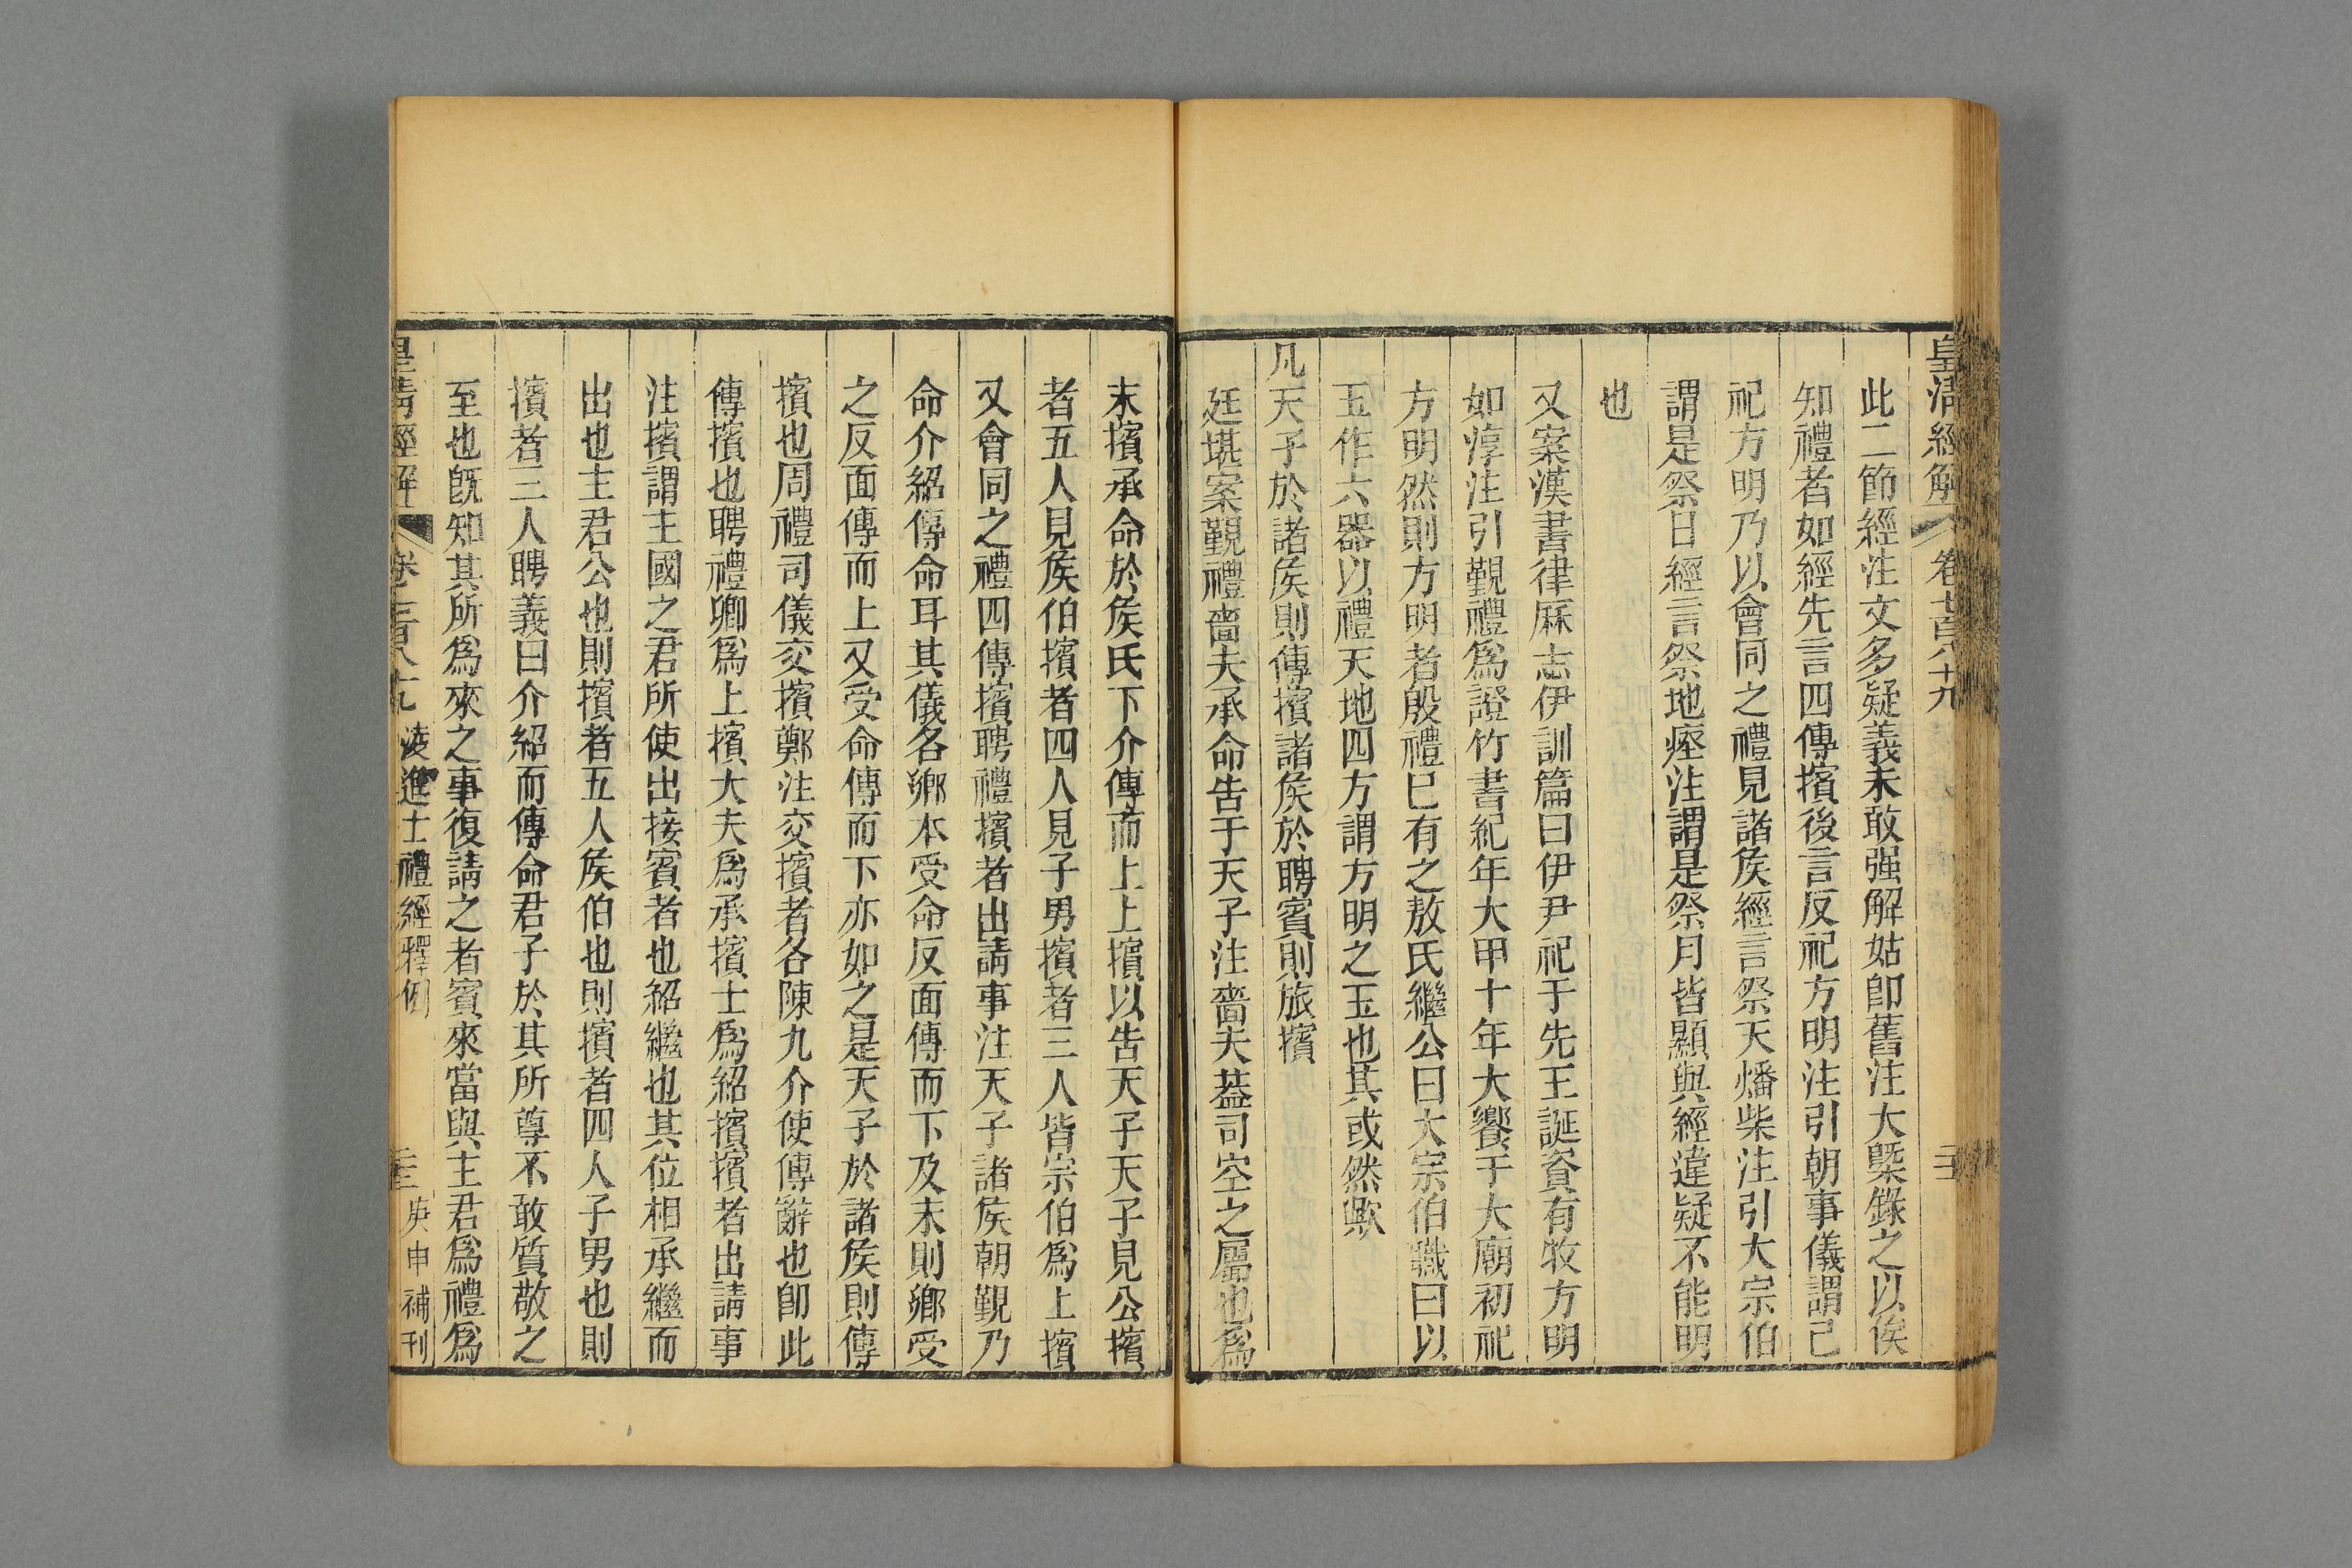 皇清經解 卷七百八十九
此二節經注文多疑義未敢强解姑卽舊注大槩錄之以俟
知禮者如經先言四傳擯後言反祀方明注引朝事儀謂己
祀方明乃以會同之禮見諸侯經言祭天燔柴注引大宗伯
謂是祭日經言祭地瘞注謂是祭月皆顯與經違疑不能明
也
又案漢書律厤志伊訓篇曰伊尹祀于先王誕資有牧方明
如淳注引覲禮爲證竹書紀年大甲十年大饗于大廟初祀
方明然則方明者殷禮巳有之敖氏繼公曰大宗伯職曰以
玉作六器以禮天地四方謂方明之玉也其或然歟
凡天子於諸侯則傳擯諸侯於聘賓則旅擯
廷堪案覲禮嗇夫承命告于天子注嗇夫葢司空之屬也爲
末擯承命於侯氏下介傳而上上擯以告天子天子見公擯
者五人見侯伯擯者四人見子男擯者三人皆宗伯爲上擯
又會同之禮四傳擯聘禮擯者出請事注天子諸侯朝覲乃
命介紹傳命耳其儀各鄉本受命反面傳而下及末則鄉受
之反面傳而上又受命傳而下亦如之是天子於諸侯則傳
擯也周禮司儀交擯鄭注交擯者各陳九介使傳辭也卽此
傳擯也聘禮卿爲上擯大夫爲承擯士爲紹擯擯者出請事
注擯謂主國之君所使出接賓者也紹繼也其位相承繼而
出也主君公也則擯者五人侯伯也則擯者四人子男也則
擯者三人聘義曰介紹而傳命君子於其所尊不敢質敬之
至也旣知其所爲來之事復請之者賓來當與主君爲禮爲
皇清經解 卷七百八十九 淩進士禮經釋例 庚申補刊